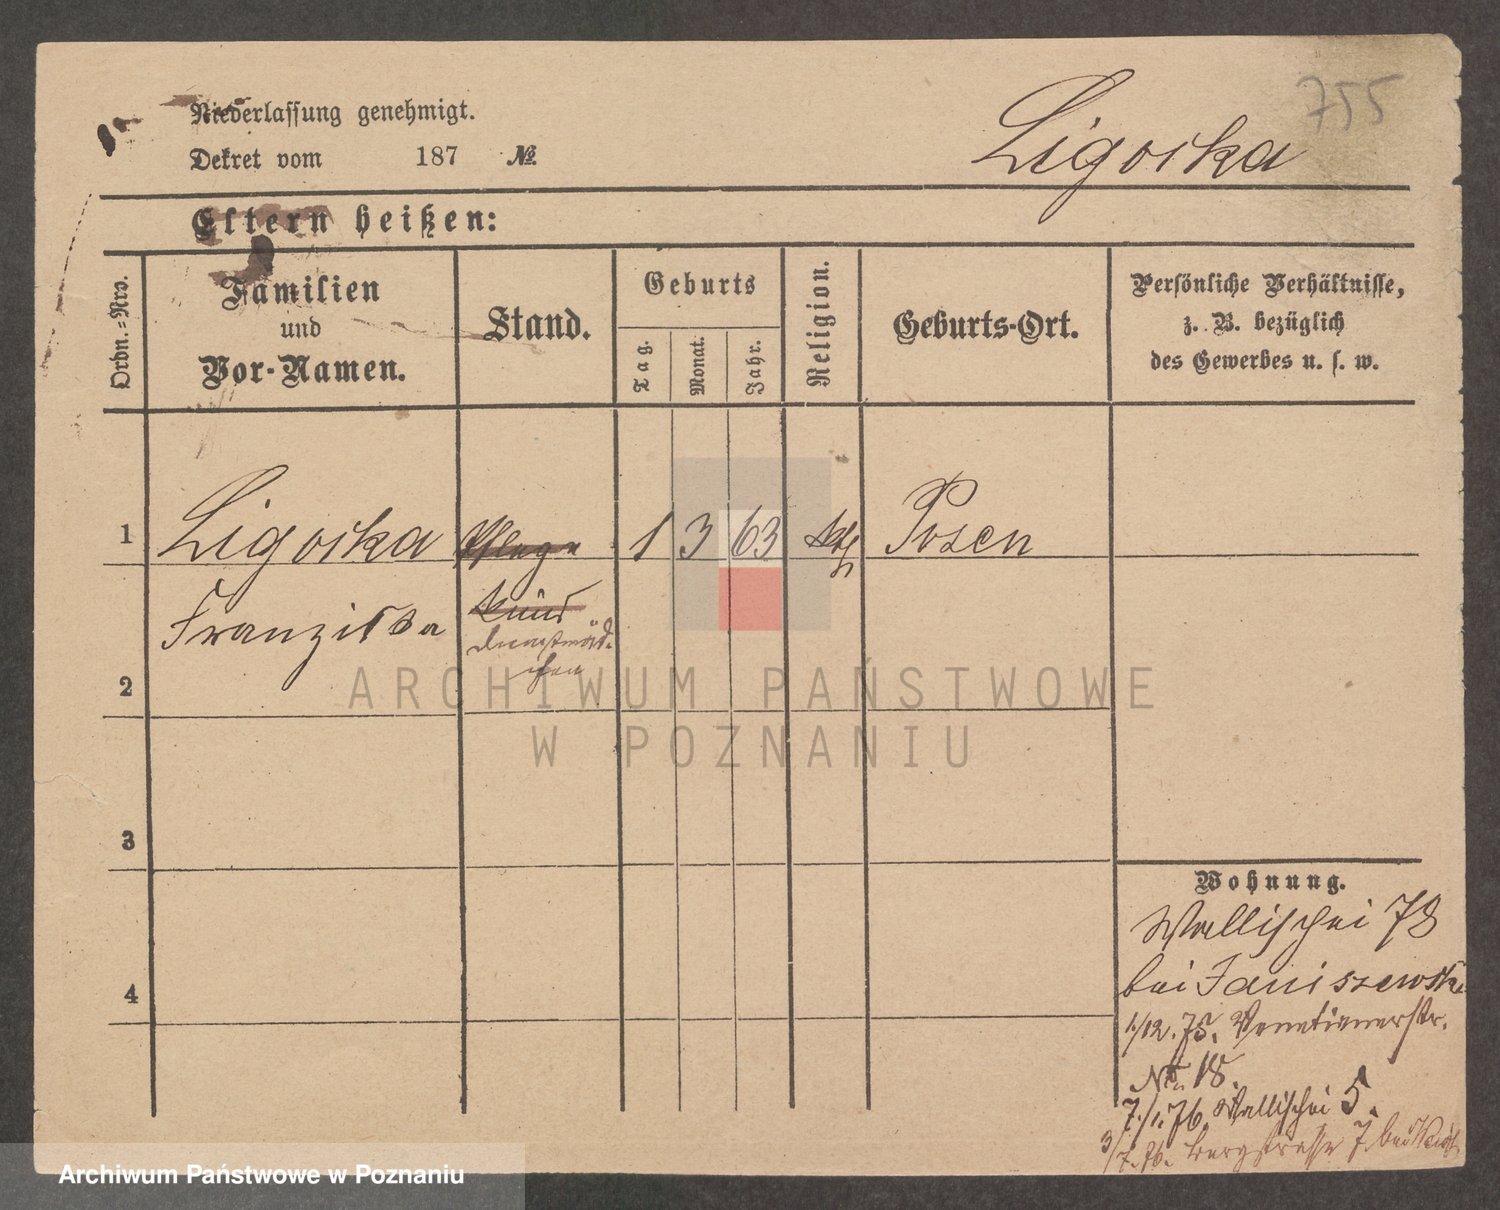 755
Niederlassung genehmigt.
Ligocka
Dekret vom 187 №
Eltern heißen:
Ordn.=Nro.
Familien
und
Vor-Namen.
Stand.
Geburts
Tag.
Monat.
Jahr.
Religion.
Geburts-Ort.
Persönliche Verhältnisse,
z. B. bezüglich
des Gewerbes u. s. w.
1 Ligocka Pflege 1 3 63 kth Posen
Franziska Kind
Dienstmäd-
chen
2
ARCHIWUM PAŃSTWOWE
W POZNANIU
3
4
Wohnung.
Wallischei 78
bei Janiszewski
1/12. 75. Venetianerstr.
No 18.
7./1. 76. Wallischei 5.
3/7. 76. Bergstrasse 7. bei
Archiwum Państwowe w Poznaniu